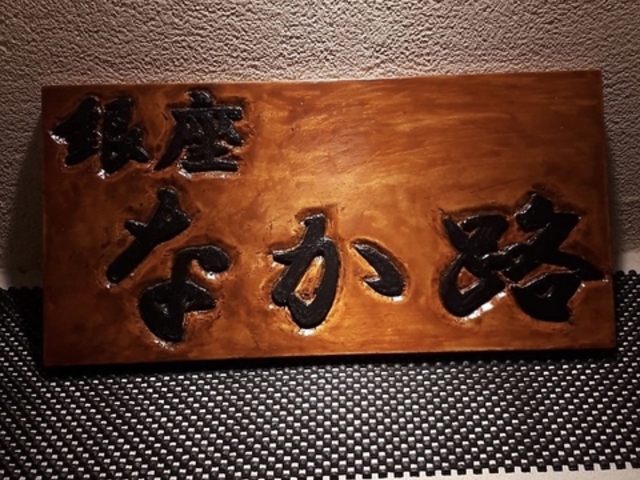 銀座
なか路